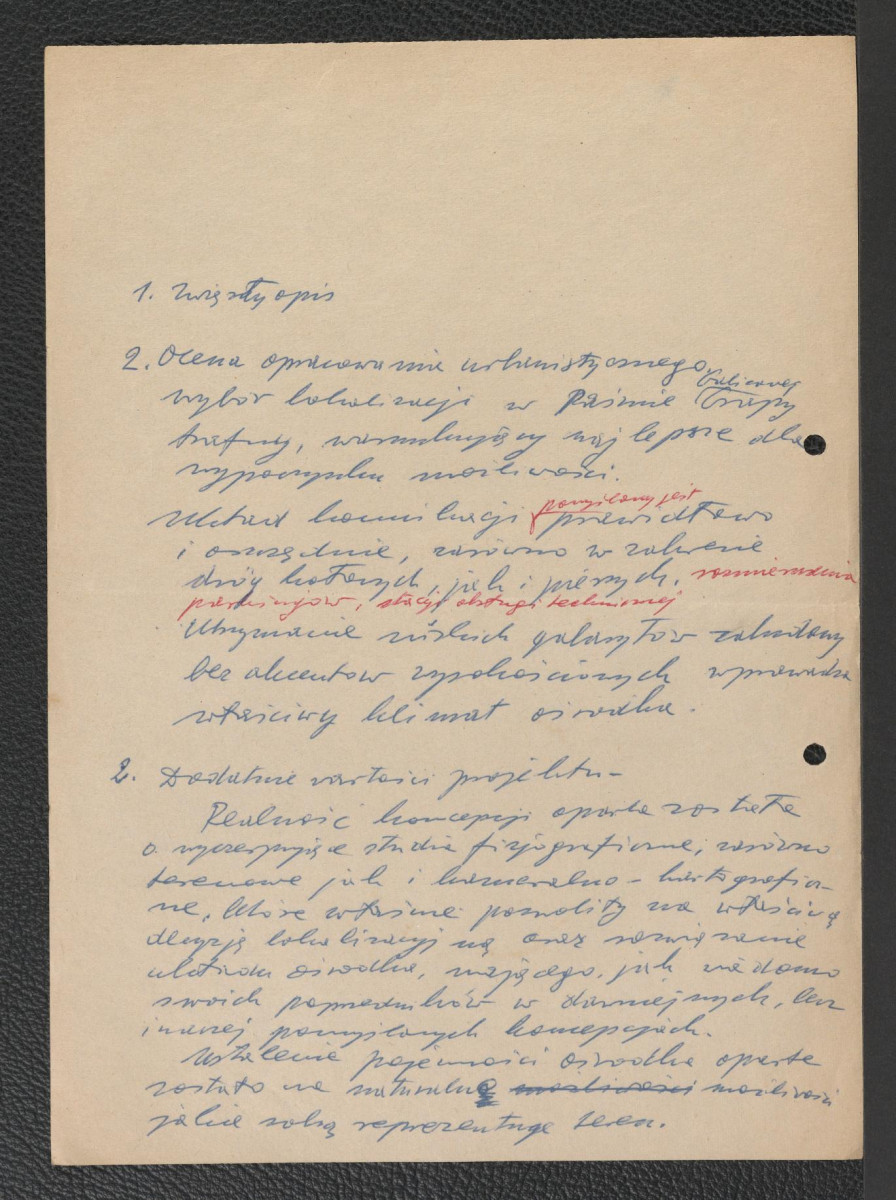 1. Zwięzły opis
2. Ocena opracowania urbanistycznego,
wybór lokalizacji w Paśmie Gubałowskiej Grapy
trafny, warunkujący najlepsze dla
wypoczynku możliwości.
Układ komunikacji pomyślany jest prawidłowo
i oszczędnie, zarówno w zakresie
dróg kołowych, jak i pieszych, rozmieszczenia
parkingów, stacji obsługi technicznej
Utrzymanie niskich gabarytów zabudowy
bez akcentów wysokościowych wprowadza
właściwy klimat ośrodka.
2. Dodatnie wartości projektu –
Realność koncepcji oparta została
o wyczerpujące studia fizjograficzne, zarówno
terenowe jak i kameralno – kartograficz-
ne, które właśnie pozwoliły na właściwą
decyzję lokalizacyjną oraz rozwiązanie
układu ośrodka, mającego, jak wiadomo
swoich poprzedników w dawniejszych, lecz
inaczej pomyślanych koncepcjach.
Ustalenie pojemności ośrodka oparte
zostało na naturalne możliwości możliwości
jakie sobą reprezentuje teren.